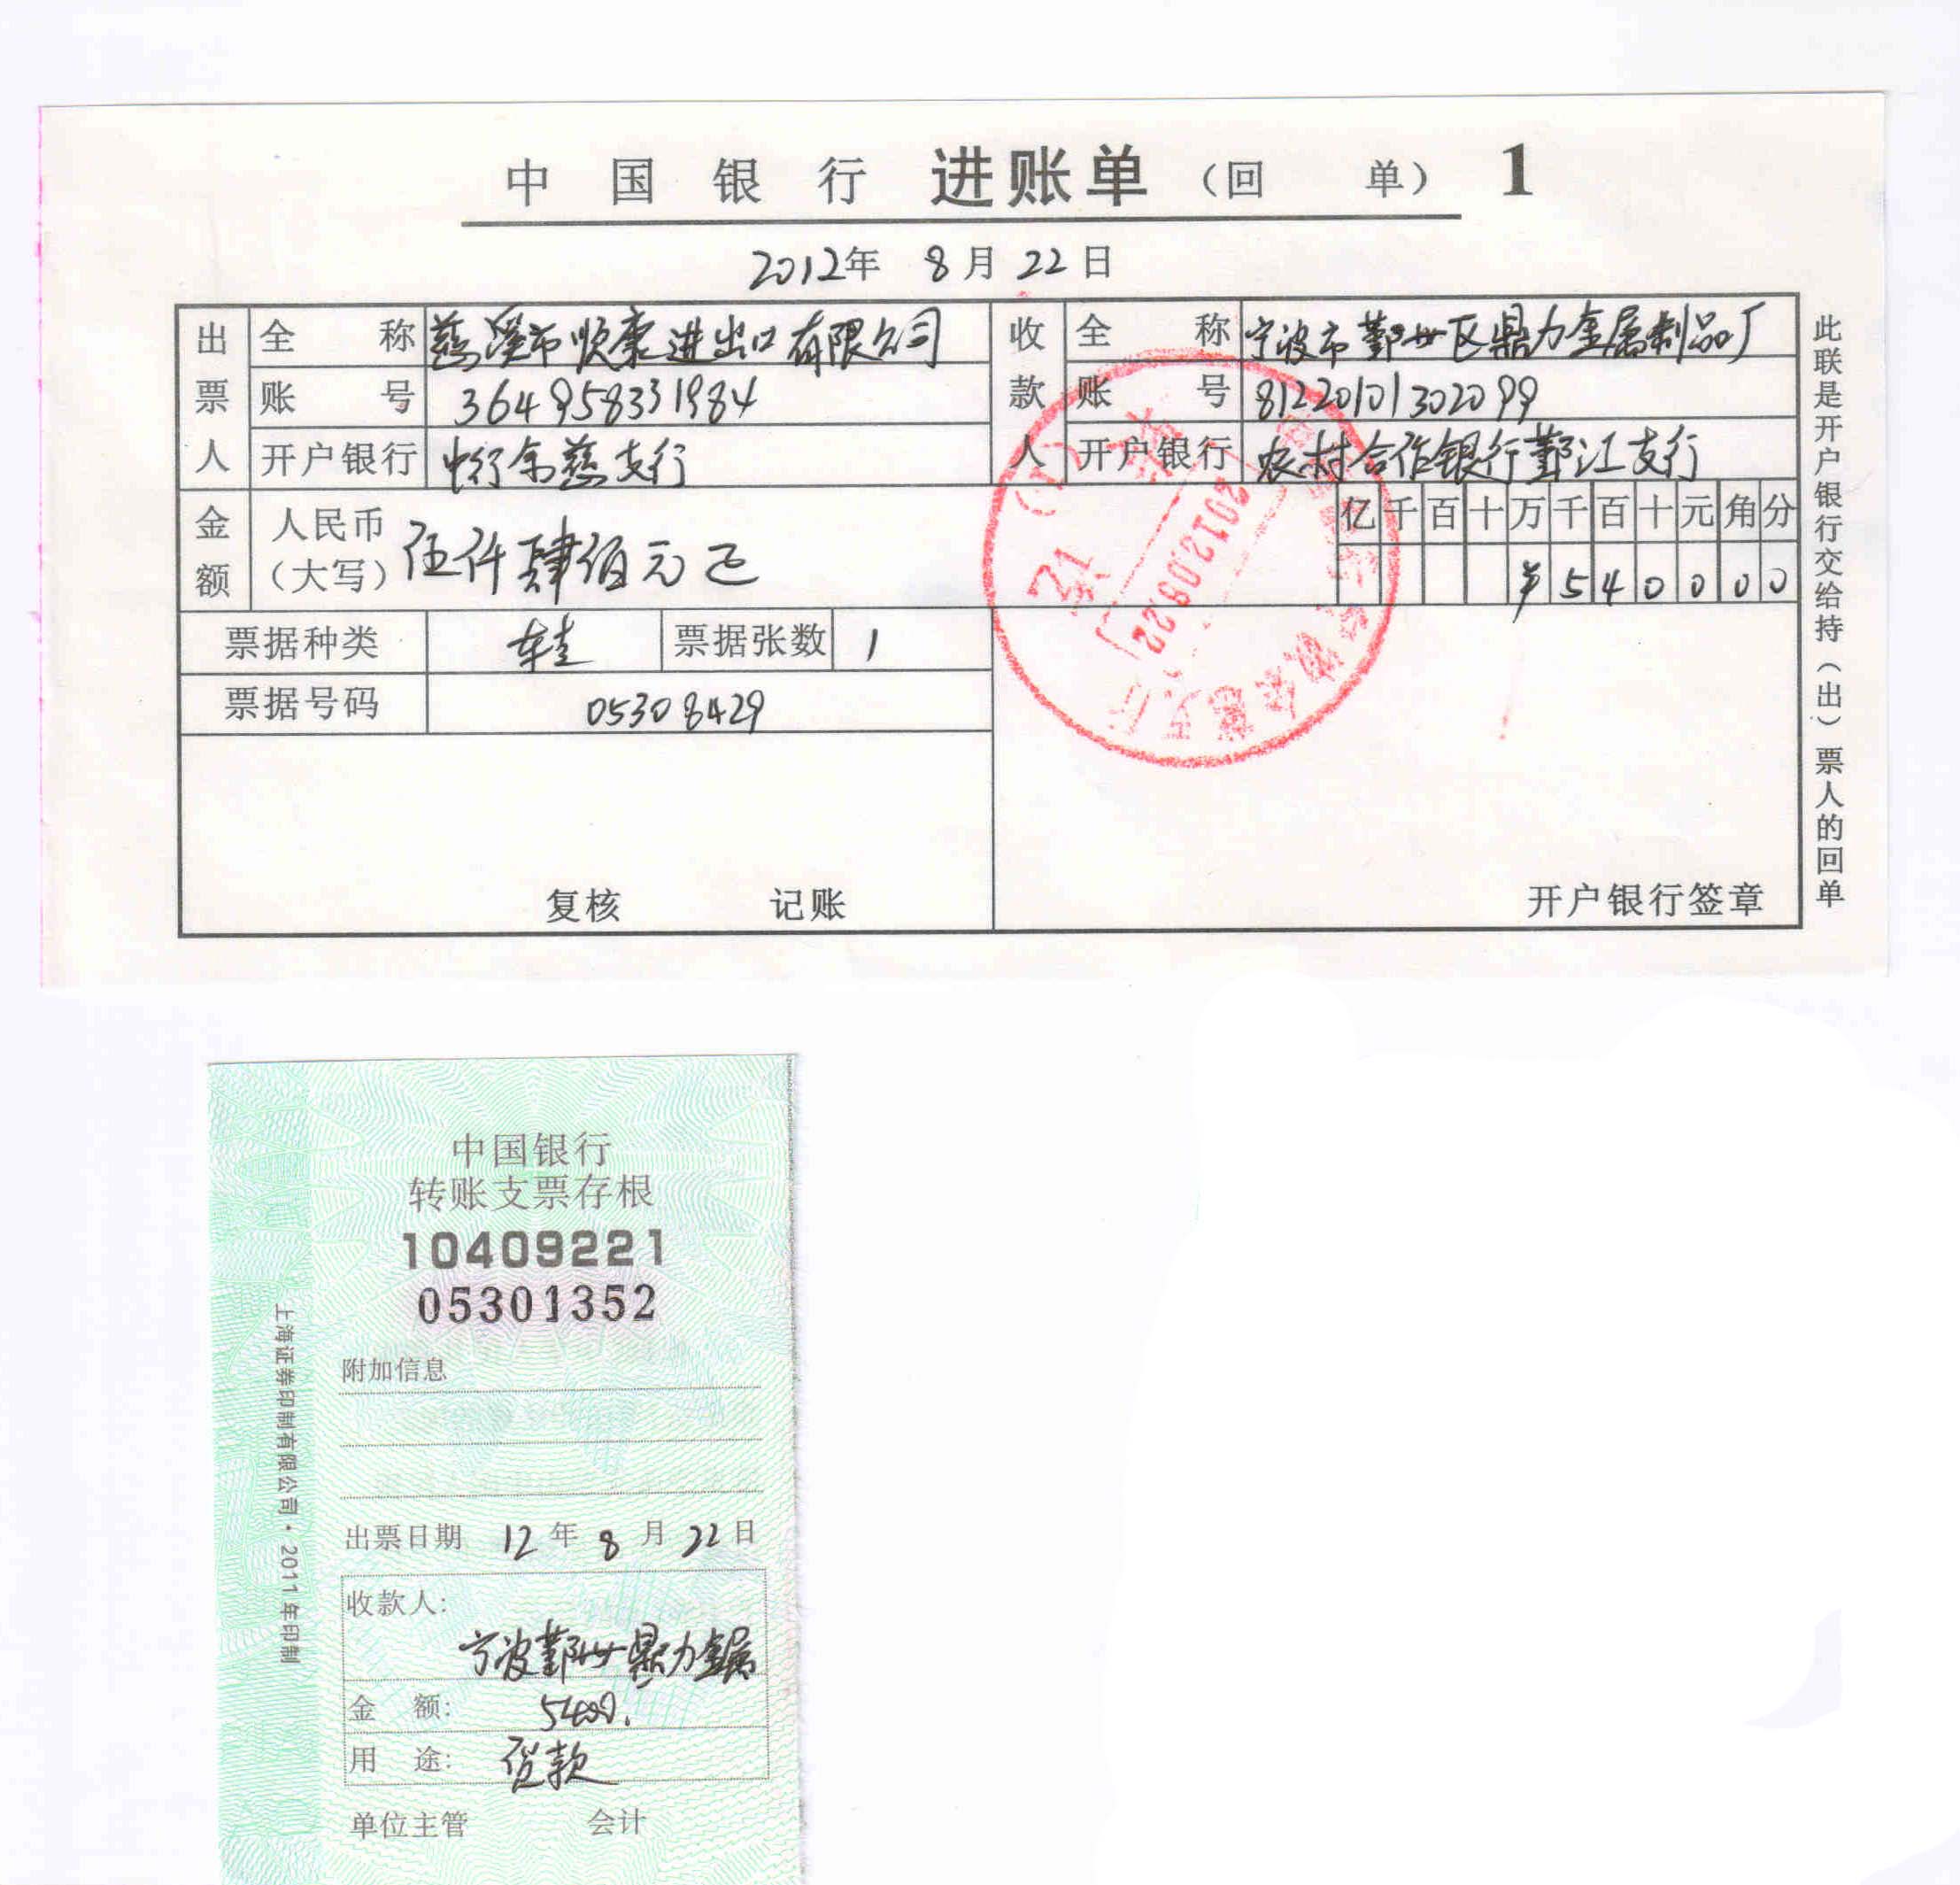 中国银行 进账单（回 单） 1
2012年 8月22日
出票人 全称 慈溪市顺康进出口有限公司 收款人 全称 宁波市鄞州区鼎力金属制品厂
账号 364958331984 账号 81220101302099
开户银行 中行余慈支行 开户银行 农村合作银行鄞江支行
金额 人民币（大写） 伍仟肆佰元正 亿千百十万千百十元角分
¥540000
票据种类 转支 票据张数 1
票据号码 05308429
2012.08.22
复核 记账 开户银行签章
此联是开户银行交给持（出）票人的回单
中国银行
转账支票存根
10409221
05301352
附加信息
出票日期 12年8月22日
收款人:
宁波鄞州鼎力金属
金额: 5400.
用途: 货款
单位主管 会计
上海证券印制有限公司·2011年印制